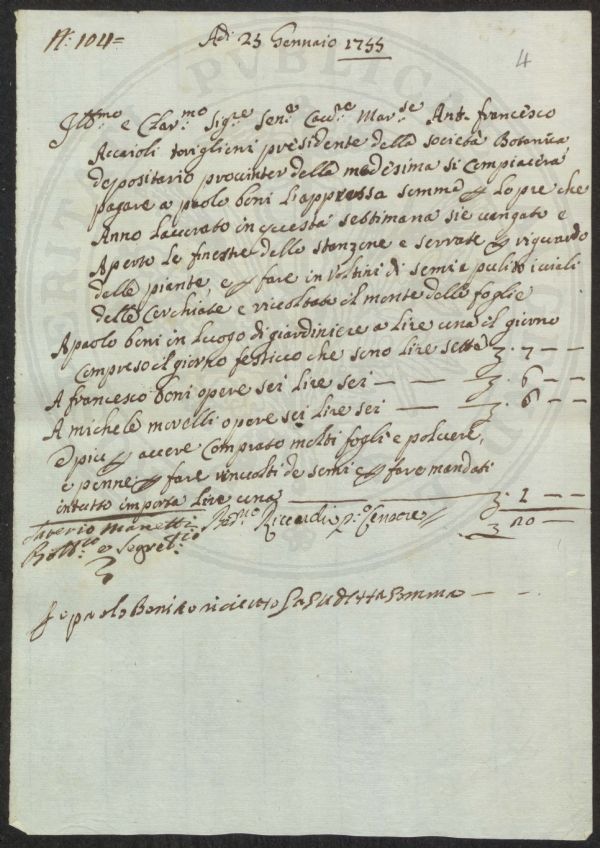 N.o 104=
Adi 25 Gennaio 1755
4
Ill.mo e Clar.mo Sig.re Sen.e Cav.re Mar.se Ant. francesco
Accaioli toriglieni presidente della società Botanica
depositario provinter della medesima si Compiacerà
pagare a paolo boni l'appressa somma p Lo pre che
Anno Lavorato in questa settimana sie vangato e
Aperto Le finestre dello stanzone e serrate p riguardo
delle piante, e p fare involtini di semi e pulito i viali
delle Cerchiate e ricoltate il monte delle foglie
A paolo boni in Luogo di giardiniere a Lire una il giorno
Compreso il giorno festivo che sono Lire sette 3. 7 — —
A francesco boni opere sei Lire sei — — 3. 6 — —
A michele morelli opere sei Lire sei — — 3. 6 — —
E piu p avere Comprato molti fogli e polvere,
e penne p fare rinvolti de semi e p fare mandati
intutto importa Lire una — 3. 1 — —
Saverio Manetti Riccardi p.o Censore 3 20 — —
Bott.co e Segret.rio
Io paolo Boni o riceuto La Sudetta Somma — —